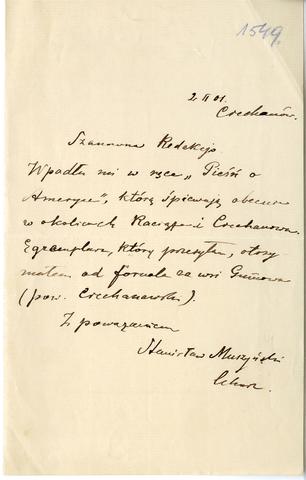 1549.
2 II 01.
Ciechanów.
Szanowna Redakcjo
Wpadła mi w ręce „Pieśń o
Ameryce", którą śpiewają obecnie
w okolicach Raciąża i Ciechanowa.
Egzemplarz, który przesyłam, otrzy
małem od fornala ze wsi
(pow. Ciechanowski).
Z poważaniem
Stanisław Murzyński
lekarz.